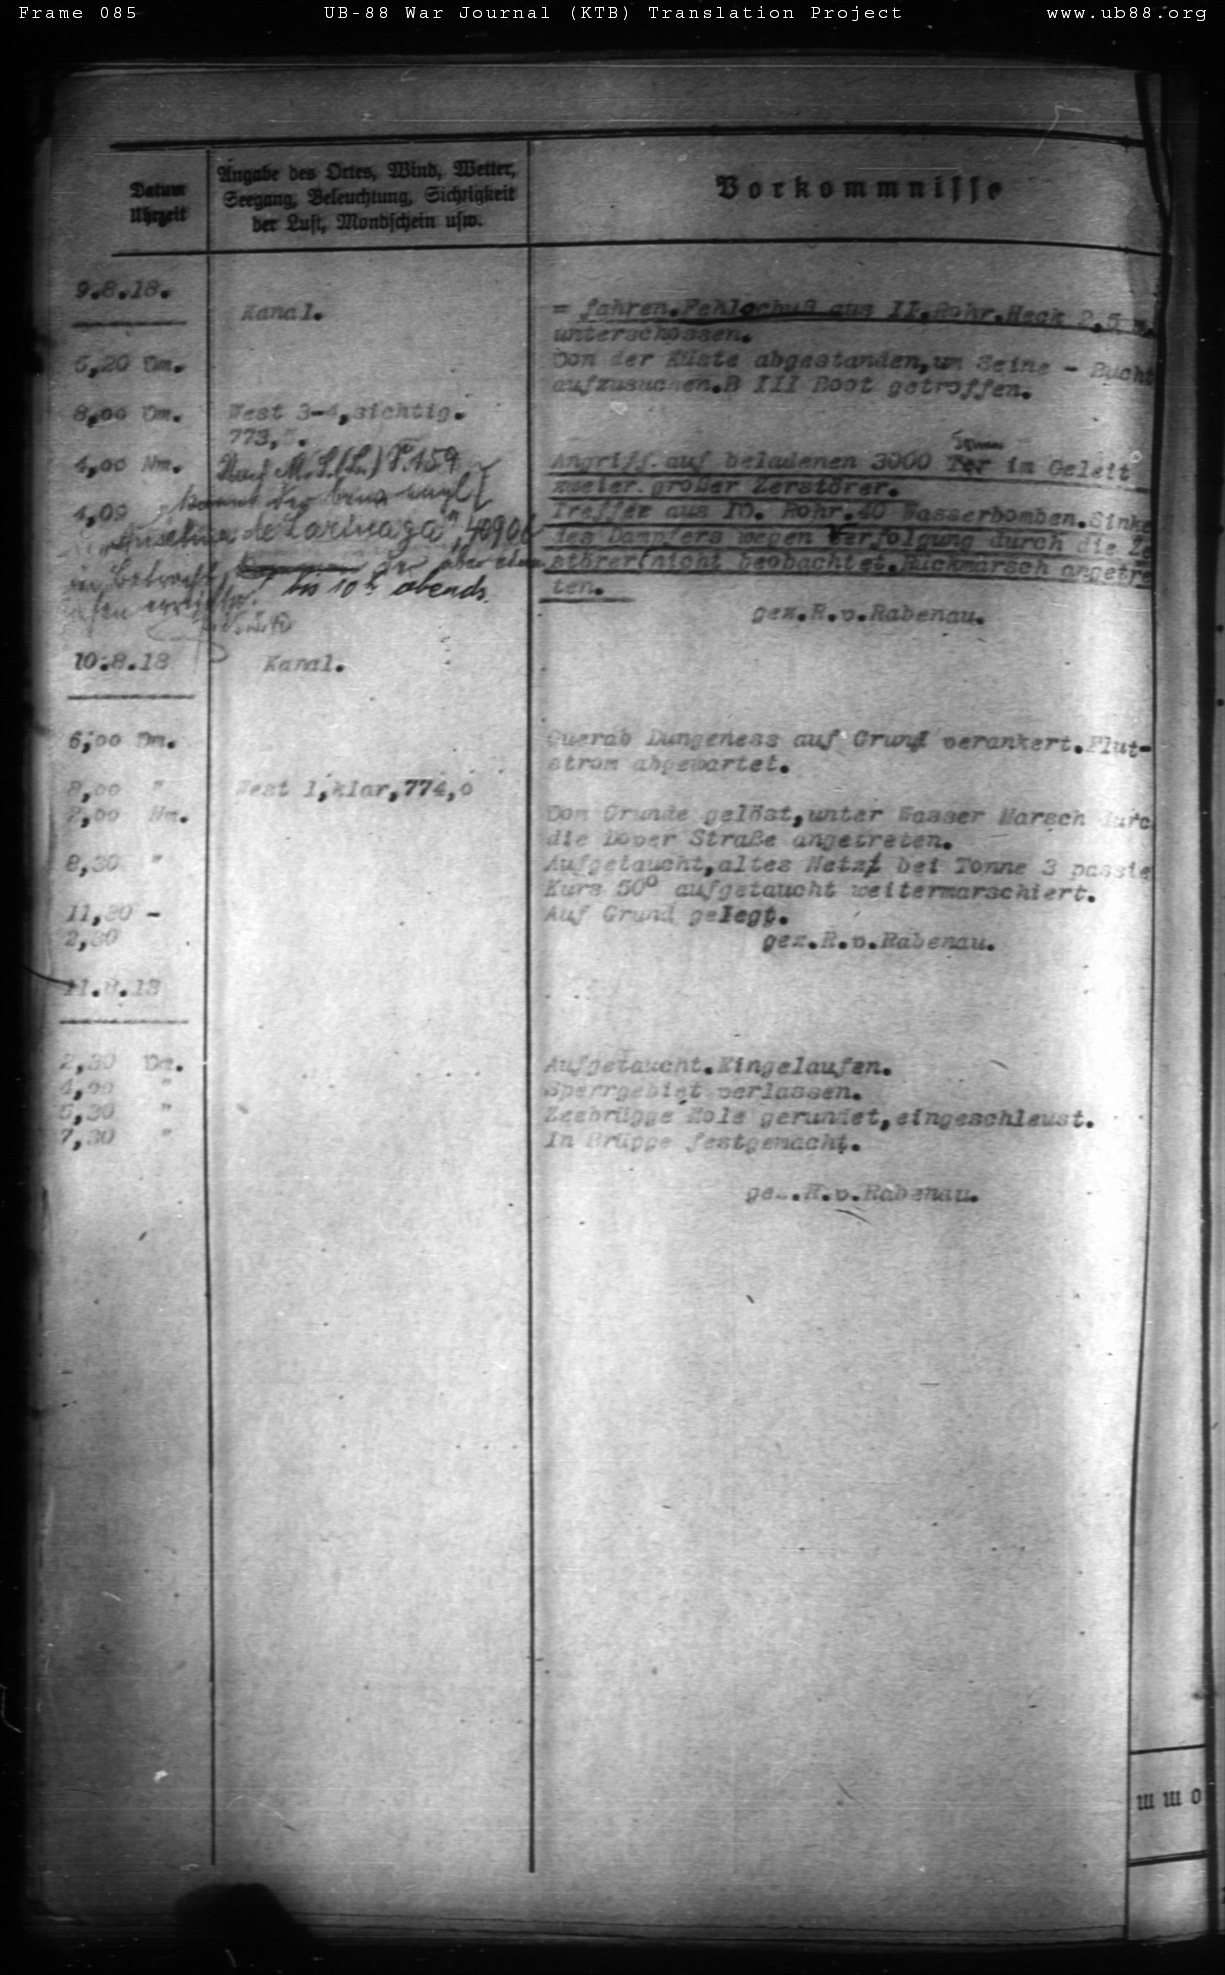 Frame 085 UB-88 War Journal (KTB) Translation Project www.ub88.org
Datum
Uhrzeit
Angabe des Ortes, Wind, Wetter,
Seegang, Beleuchtung, Sichtigkeit
der Luft, Mondschein usw.
Vorkommnisse
9.8.18.
Kanal.
= fahren.Fehlschuß aus II.Rohr.Heck 2,5 m.
unterschossen.
5,20 Vm.
Von der Küste abgestanden,um Seine - Bucht
aufzusuchen.B III Boot getroffen.
8,00 Vm. West 3-4,sichtig.
773,
4,00 Nm.
Nach M.S.(L.) S.159
Angriff auf beladenen 3000 im Geleit
zweier großer Zerstörer.
4,09
kommt der engl
Treffer aus IV. Rohr.40 Wasserbomben.Sinke
de Larrinaga", 4090
des Dampfers wegen Verfolgung durch die Ze
in Betracht, der aber
störer nicht beobachtet.Rückmarsch angetre
bis 10h abends.
ten.
gez.R.v.Rabenau.
10.8.18 Kanal.
6,00 Vm.
Querab Dungeness auf Grund verankert.Flut-
strom abgewartet.
8,00 " West 1,klar,774,0
2,00 Nm.
Vom Grunde gelöst,unter Wasser Marsch durc
die Dover Straße angetreten.
8,30 "
Aufgetaucht,altes Netz bei Tonne 3 passie
Kurs 50° aufgetaucht weitermarschiert.
11,30 -
Auf Grund gelegt.
2,30
gez.R.v.Rabenau.
11.8.18
2,30 Vm. Aufgetaucht.Eingelaufen.
4,00 " Sperrgebiet verlassen.
5,30 " Zeebrügge Mole gerundet,eingeschleust.
7,30 " In Brügge festgemacht.
gez.R.v.Rabenau.
o m m